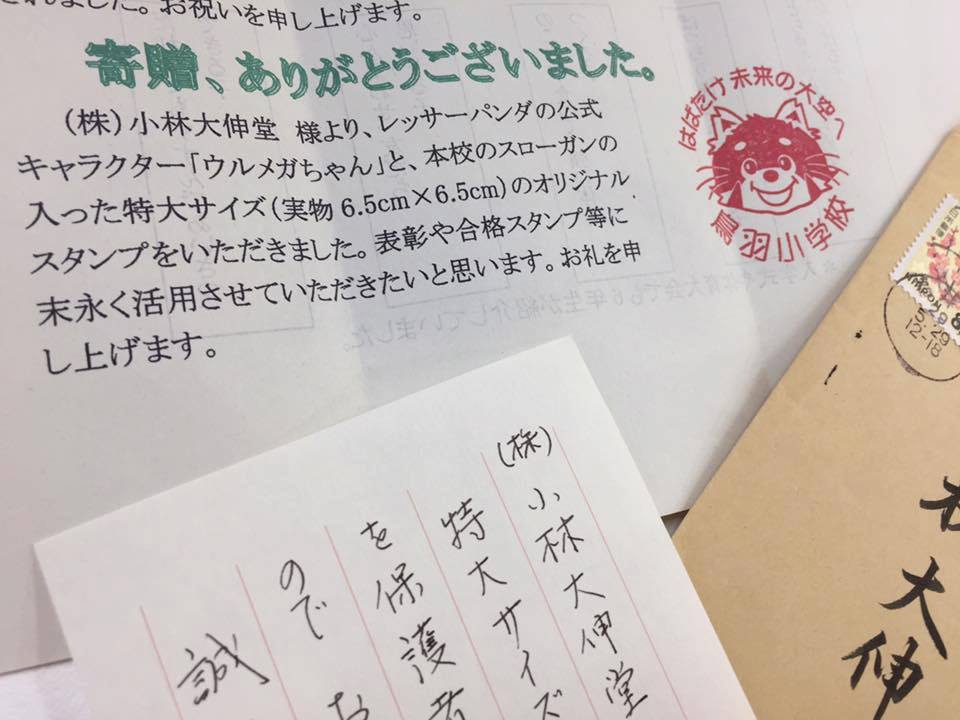 されました。お祝いを申し上げます。
寄贈、ありがとうございました。
(株)小林大伸堂 様より、レッサーパンダの公式
キャラクター「ウルメガちゃん」と、本校のスローガンの
入った特大サイズ(実物6.5cm×6.5cm)のオリジナル
スタンプをいただきました。表彰や合格スタンプ等に
末永く活用させていただきたいと思います。お礼を申
し上げます。
はばたけ未来の大空へ
羽小学校
(株)小林大伸堂
特大サイズ
を保護者
のでお
誠
大伸
29
12-18